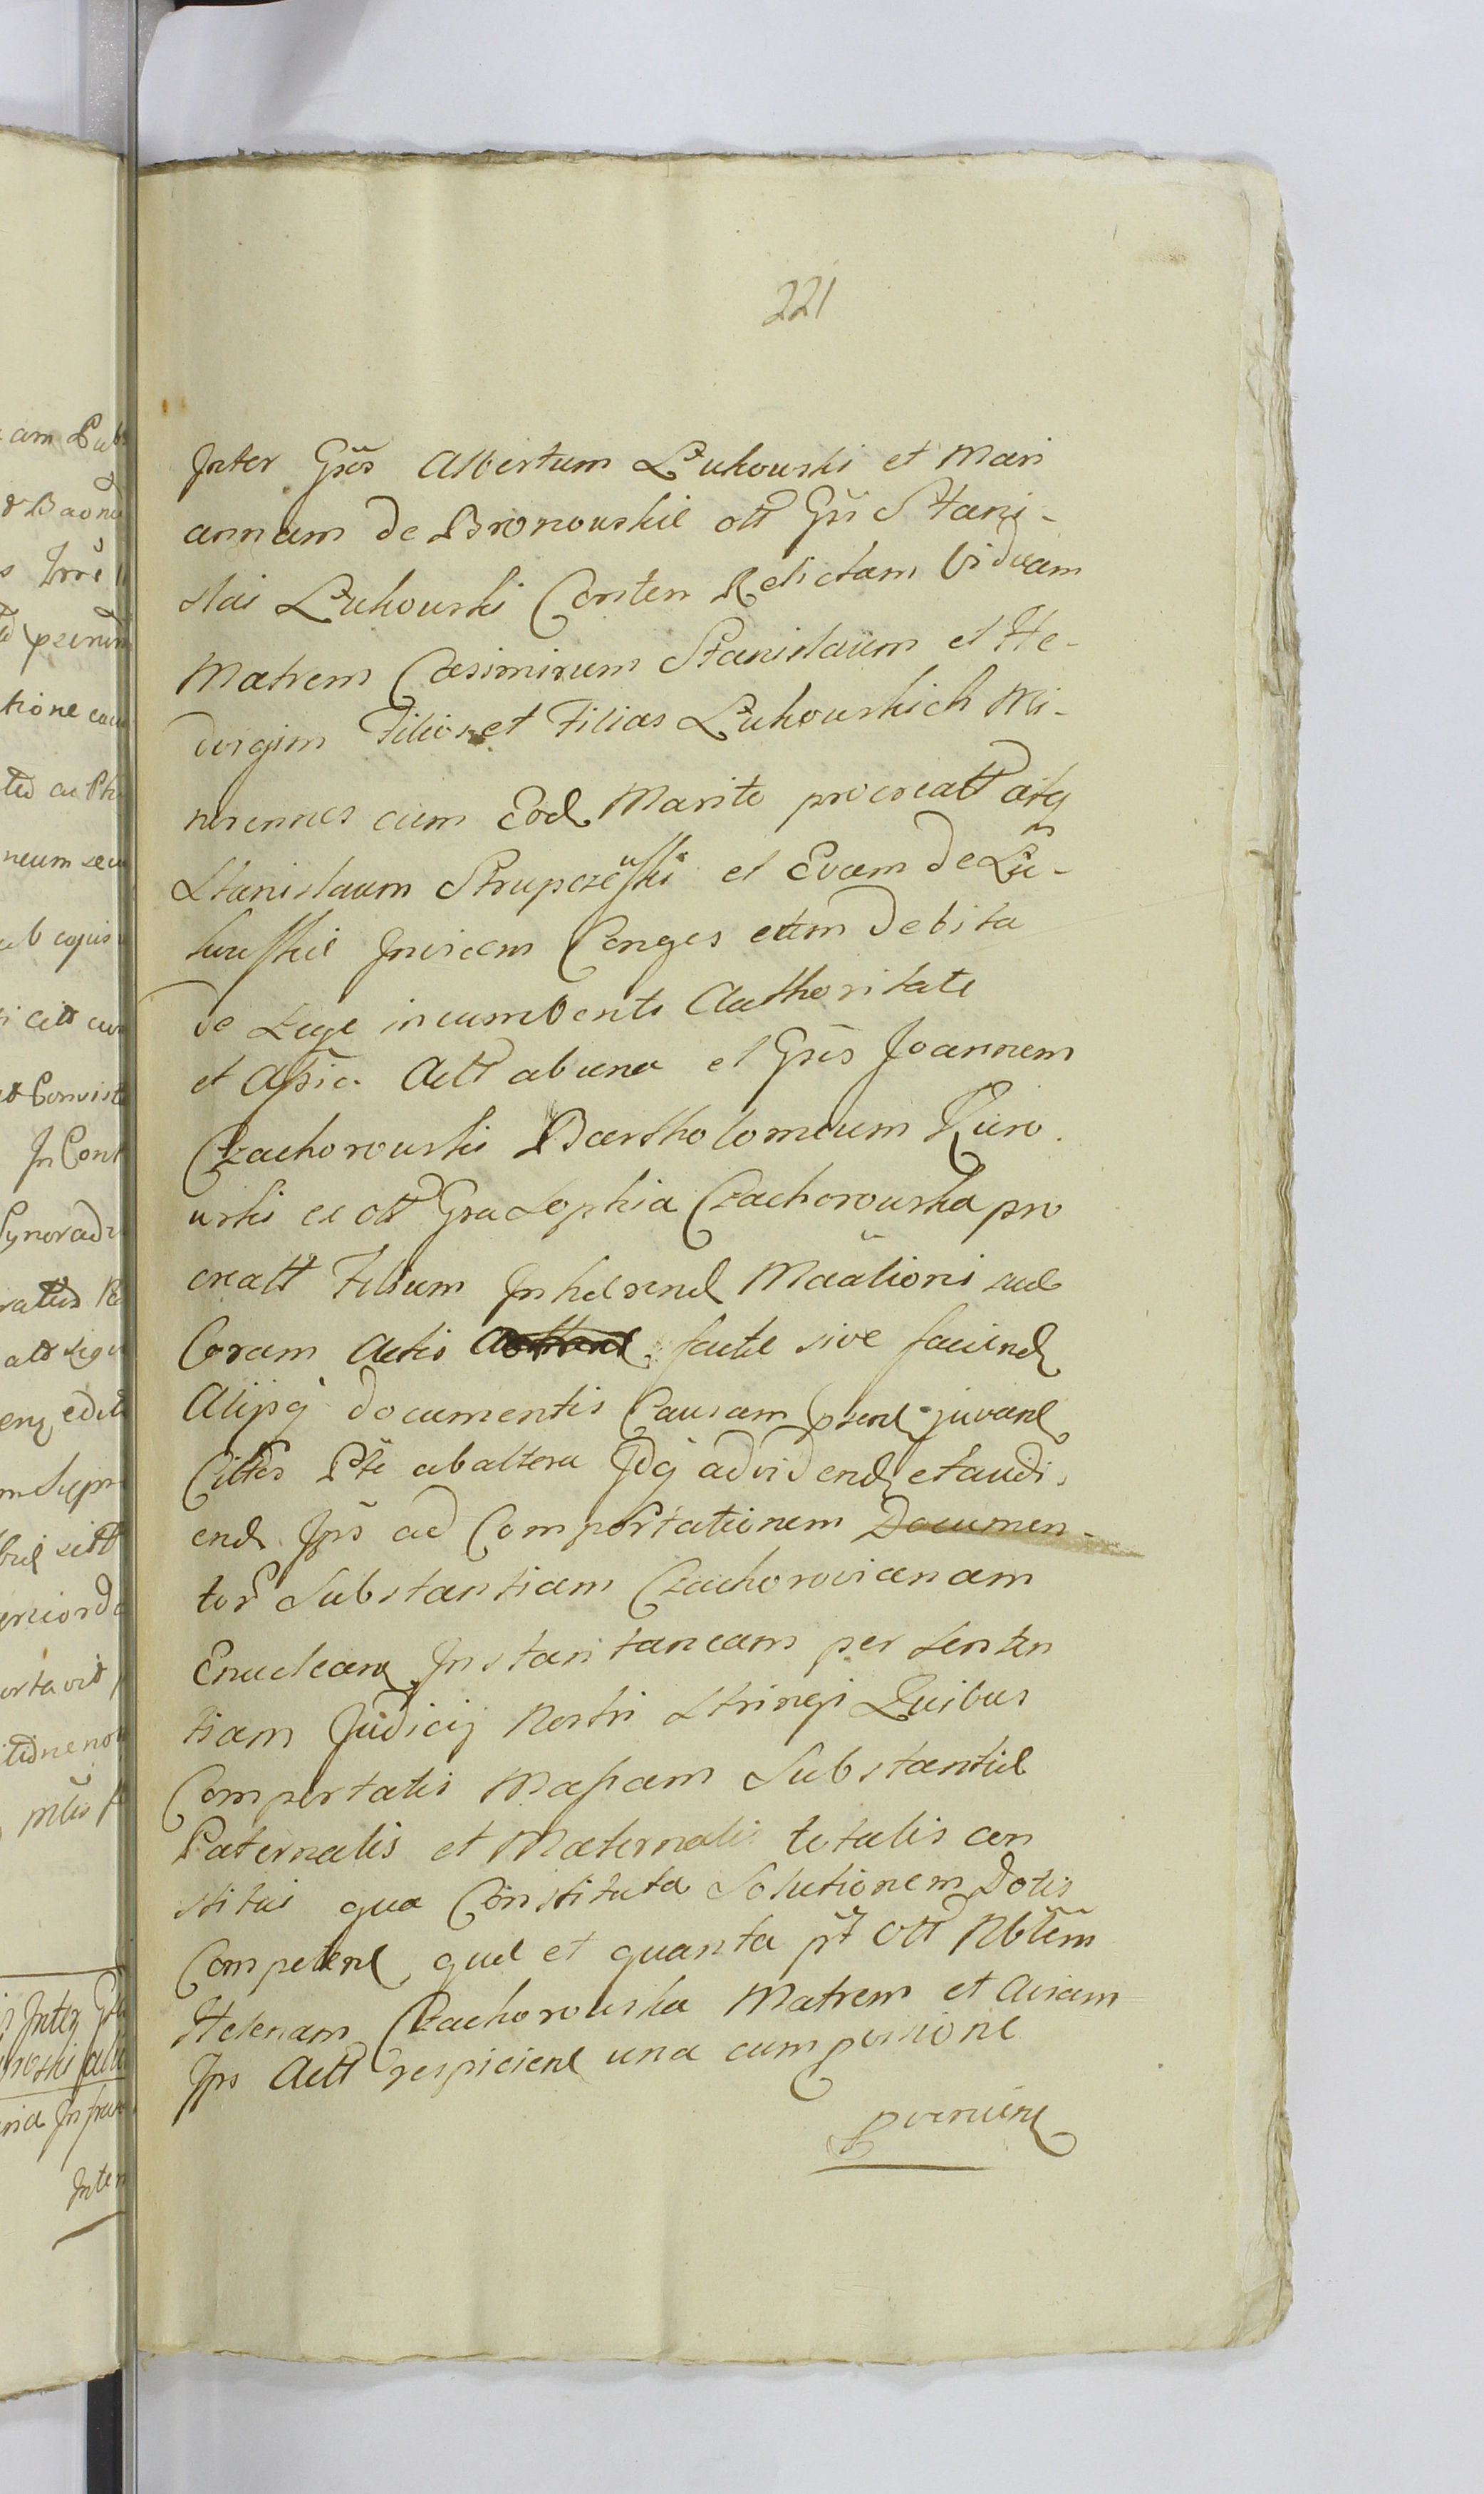 221
Inter Gsōs Albertum Łukowski et Mari
annam de Bronowskie ott Gsi Stani-
slai Łukowski Conten Relictam Viduam
Matrem Casimirum Stanislaum et He-
dvigim Filios et Filias Łukowskich Mi-
norennes cum Eod Marito procreatt atq
Stanislaum Strupczewski et Evam de Łu-
kowskie Invicem Conges cum debita
de Lege incumbente Authoritate
et Assia Actt ab una et Gsōs Joannem
Czachorowski Bartholomeum Kuro
wski ex ott Gsa Sophia Czachorowska pro
creatt Filium Inhaerend Māātioni suae
Coram Actis factae sive faciend
Alijsq documentis Causam psene juvane
Cittos Pte ab altera Idq ad vidend et audi
end Ips ad Comportationem Documen-
tor Substantiam Czachorovianam
Enuclean Instantaneam per Senten
tiam Judicij Nostri Stringi Quibus
Comportatis Massam Substantiae
Paternalis et Maternalis totalis con
stitui qua Constituta Solutionem Dotis
Competene quae et quanta pt Ott Nbilem
Helenam Czachorowska Matrem et Aviam
Ips Actt respiciene una cum
provenien
am Pub
tione cau
neum secu
In Cont
Inter